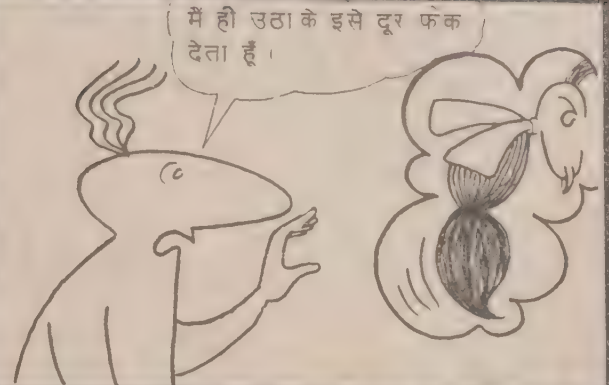 मैं ही उठा के इसे दूर फेंक
देता हूँ।